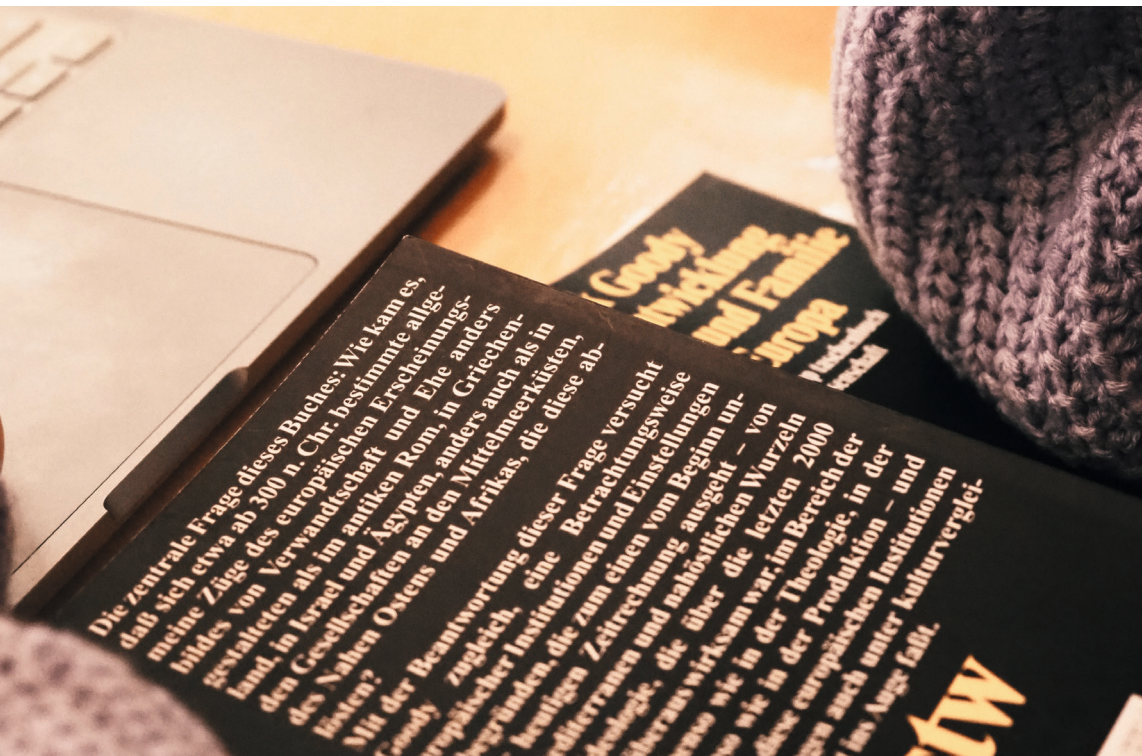 Die zentrale Frage dieses Buches: Wie kam es,
daß sich etwa ab 300 n. Chr. bestimmte allge-
meine Züge des europäischen Erscheinungs-
bildes von Verwandtschaft und Ehe anders
gestalteten als im antiken Rom, in Griechen-
land, in Israel und Ägypten, anders auch als in
den Gesellschaften an den Mittelmeerküsten,
des Nahen Ostens und Afrikas, die diese ab-
lösten?
Mit der Beantwortung dieser Frage versucht
Goody zugleich, eine Betrachtungsweise
europäischer Institutionen und Einstellungen
begründen, die zum einen vom Beginn un-
heutigen Zeitrechnung ausgeht – von
diterranen und nahöstlichen Wurzeln
deologie, die über die letzten 2000
überaus wirksam war: im Bereich der
enso wie in der Theologie, in der
so wie in der Produktion – und
diese europäischen Institutionen
gen auch unter kulturverglei-
ins Auge faßt.
stw
Goody
twicklung
und Familie
Europa